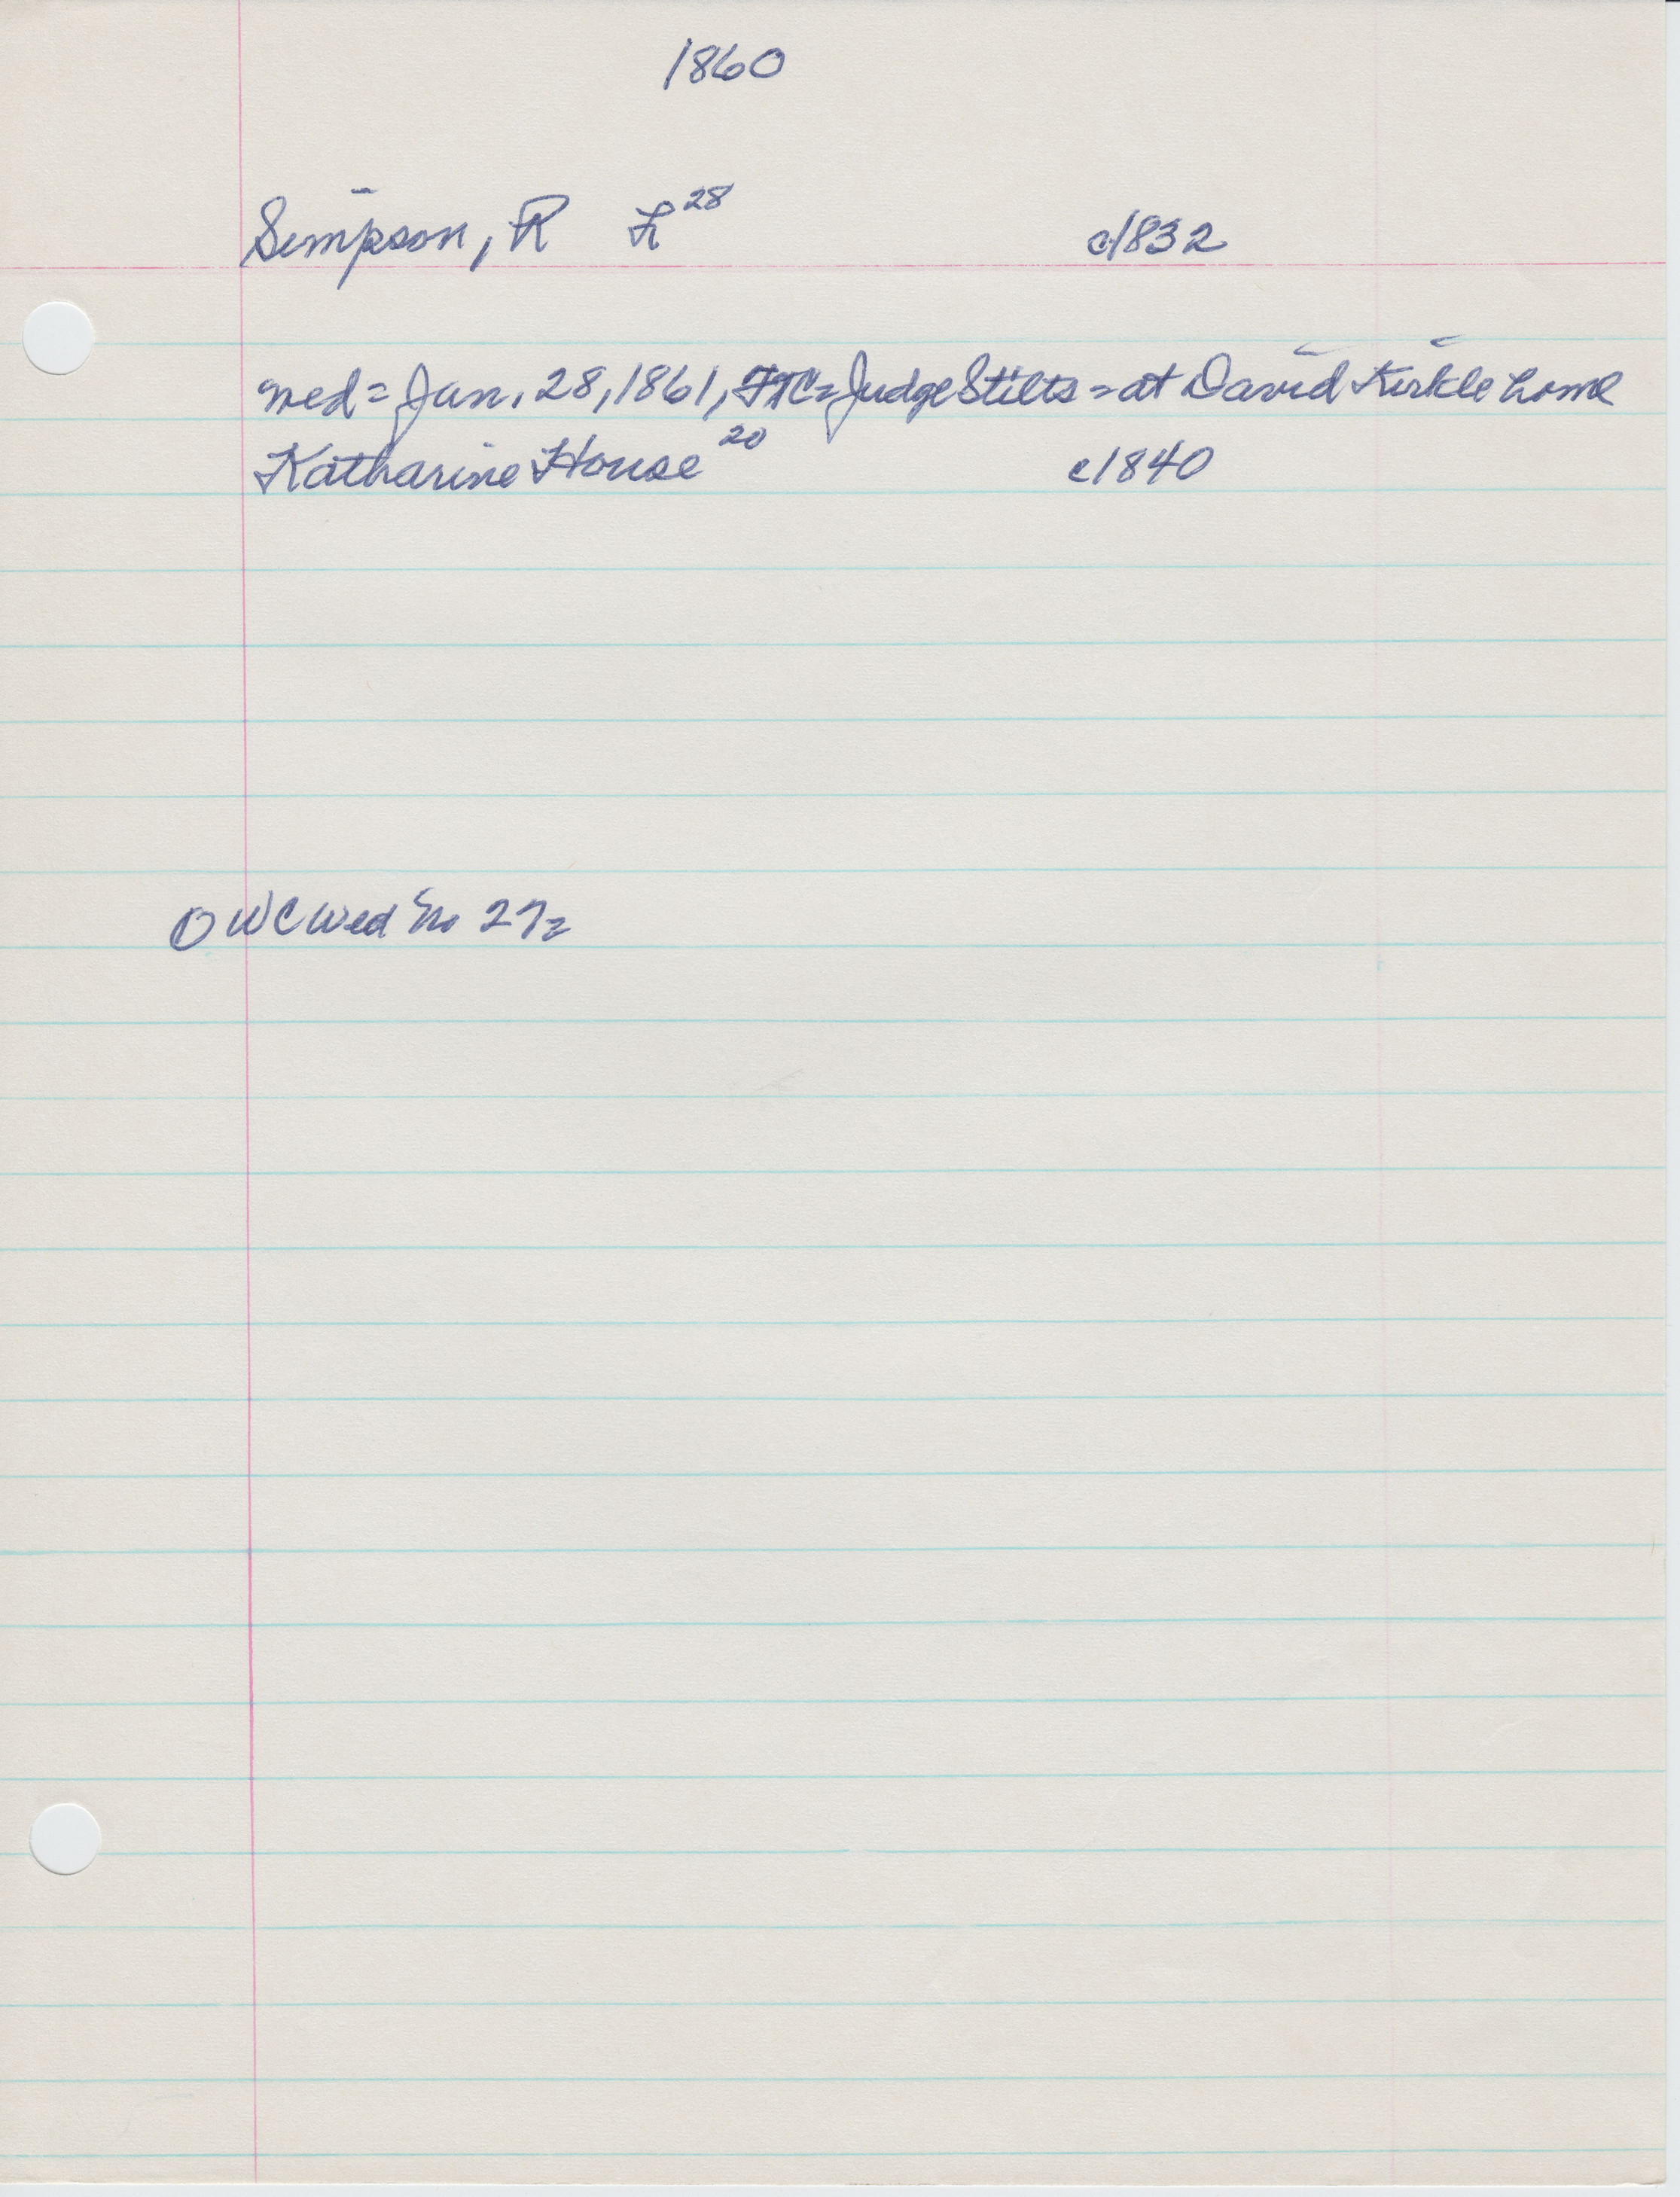 1860
Simpson, R L 28 c1832
wed = Jan. 28, 1861, Judge Stilts = at David Kirkle home
Katharine House 20 c1840
WC Wed No 27=